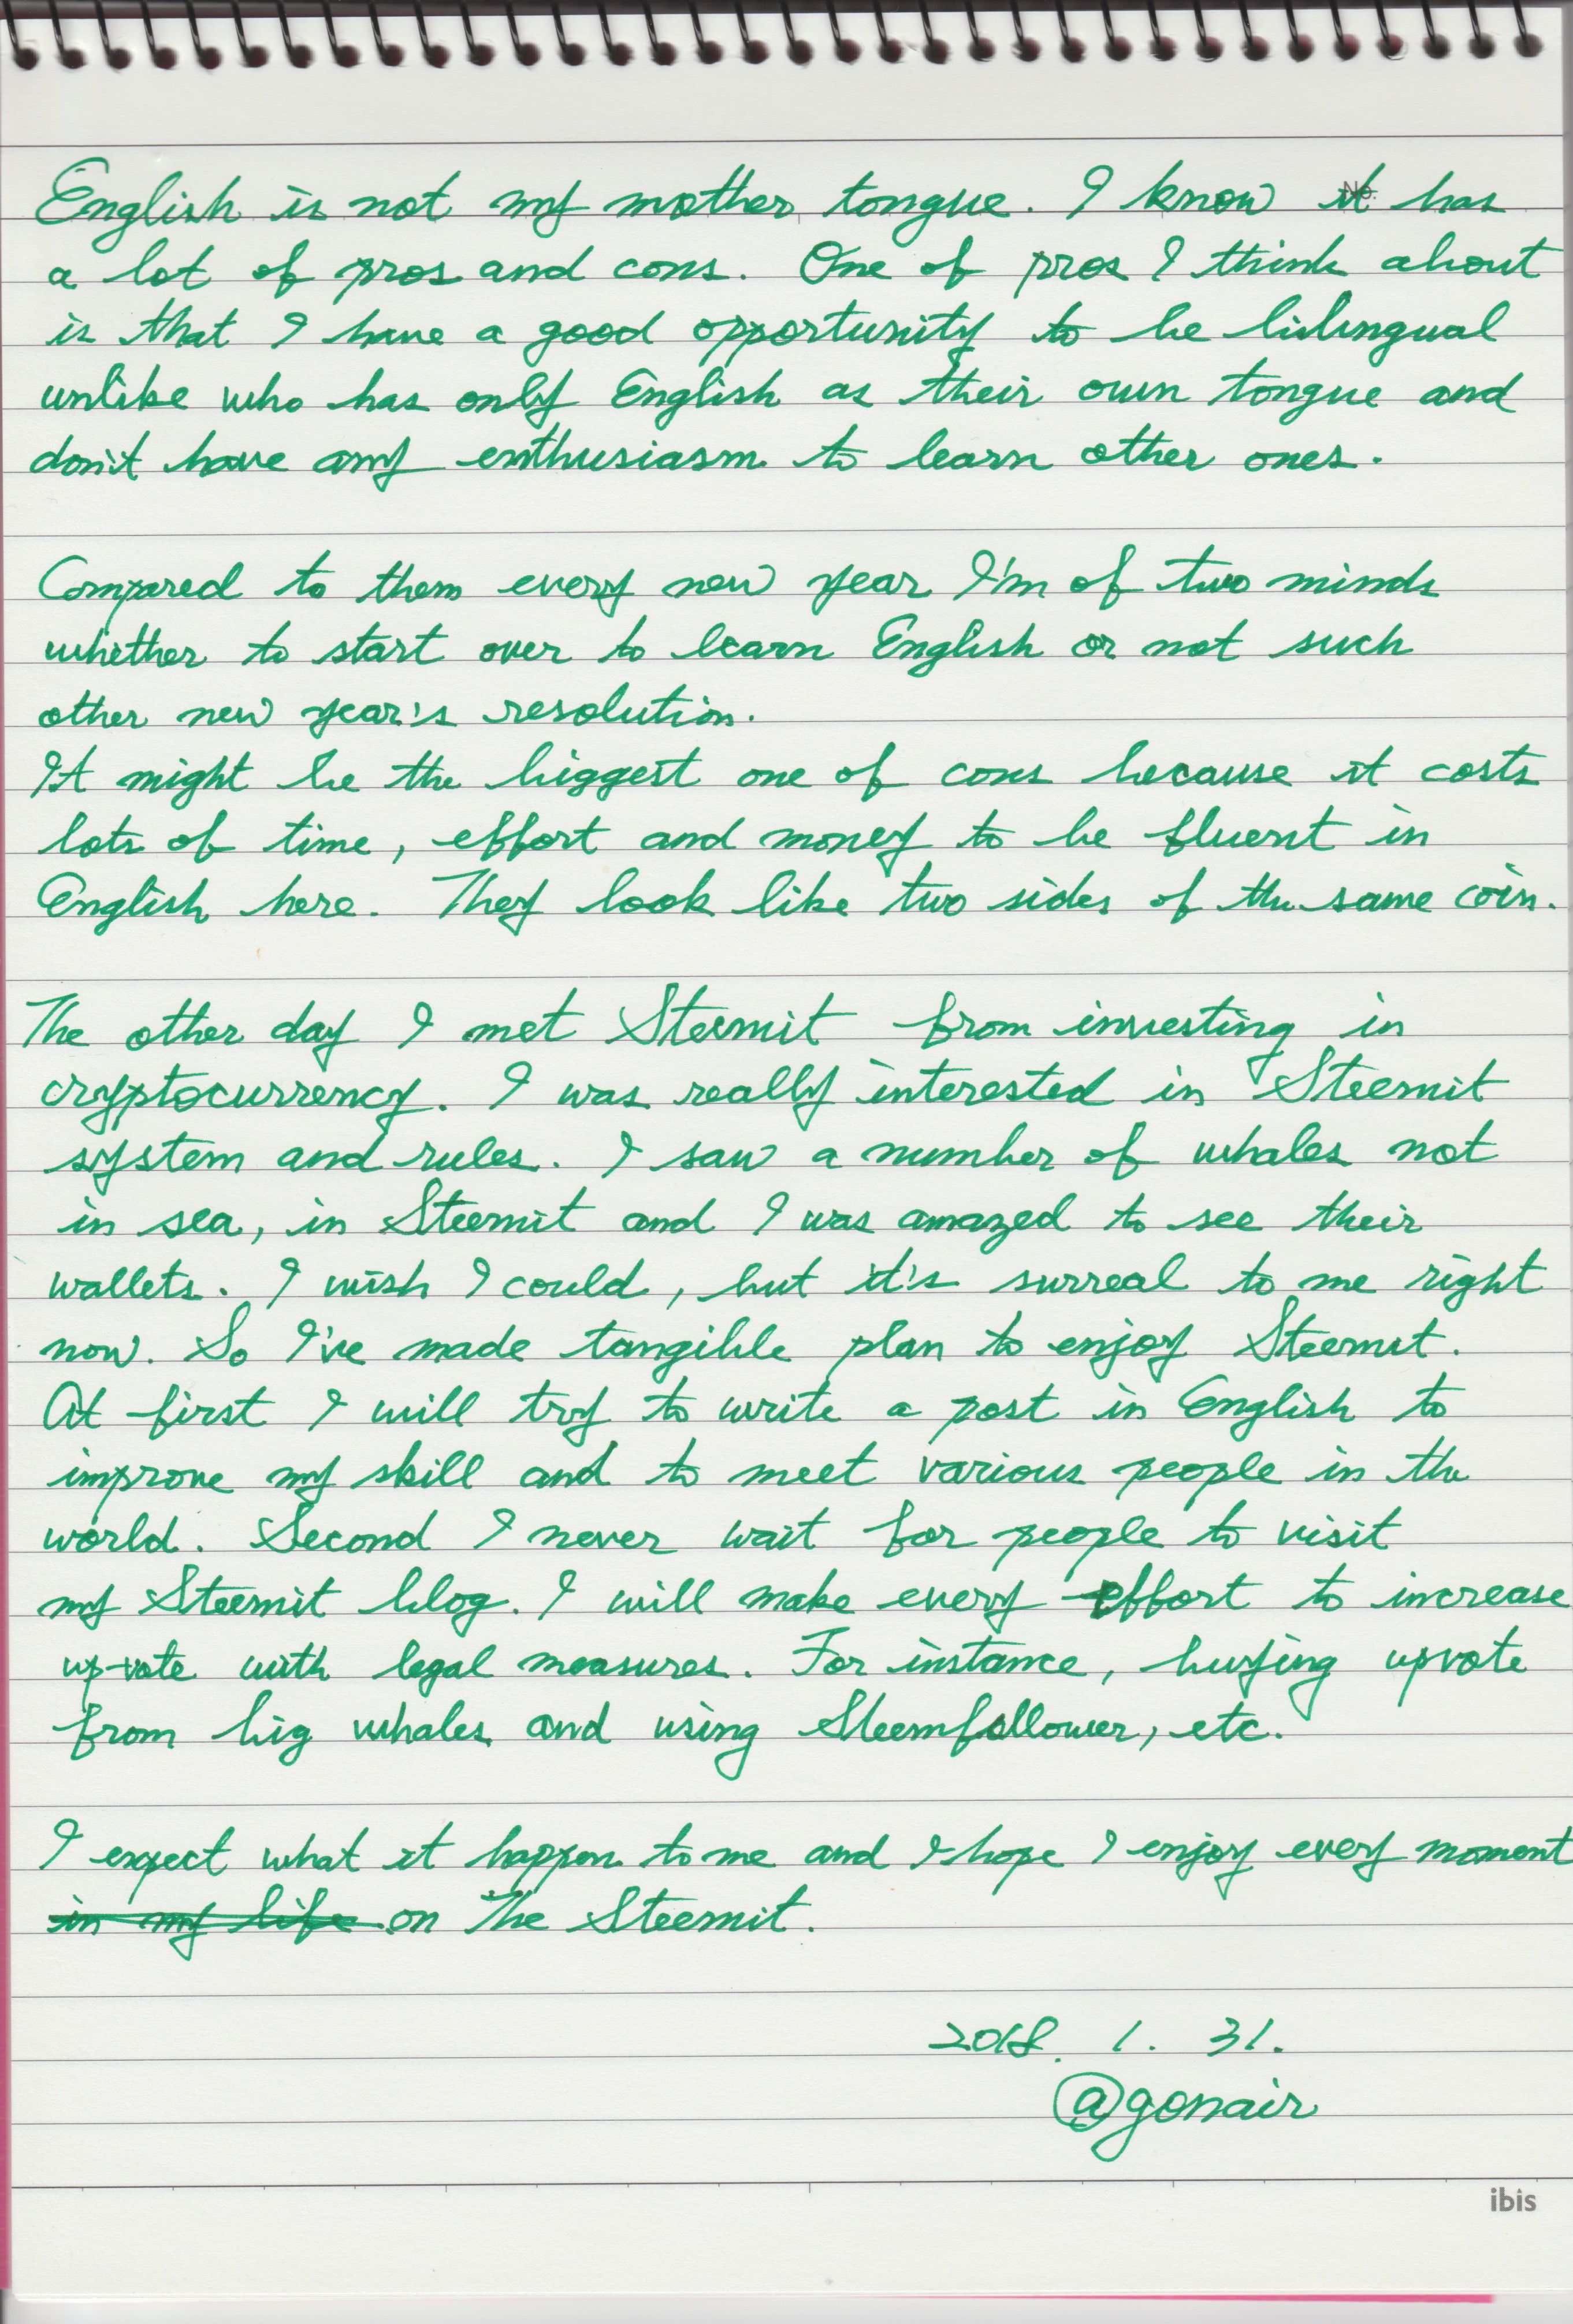 No.
English is not my mother tongue. I know it has
a lot of pros and cons. One of pros I think about
is that I have a good opportunity to be bilingual
unlike who has only English as their own tongue and
don't have any enthusiasm to learn other ones.
Compared to them every new year I'm of two minds
whether to start over to learn English or not such
other new year's resolution.
It might be the biggest one of cons because it costs
lots of time, effort and money to be fluent in
English here. They look like two sides of the same coin.
The other day I met Steemit from investing in
cryptocurrency. I was really interested in Steemit
system and rules. I saw a number of whales not
in sea, in Steemit and I was amazed to see their
wallets. I wish I could, but it's surreal to me right
now. So I've made tangible plan to enjoy Steemit.
At first I will try to write a post in English to
improve my skill and to meet various people in the
world. Second I never wait for people to visit
my Steemit blog. I will make every effort to increase
up-vote with legal measures. For instance, buying upvote
from big whales and using Steemfollower, etc.
I expect what it happen to me and I hope I enjoy every moment
in my life on The Steemit.
2018. 1. 31.
@gonair
ibis